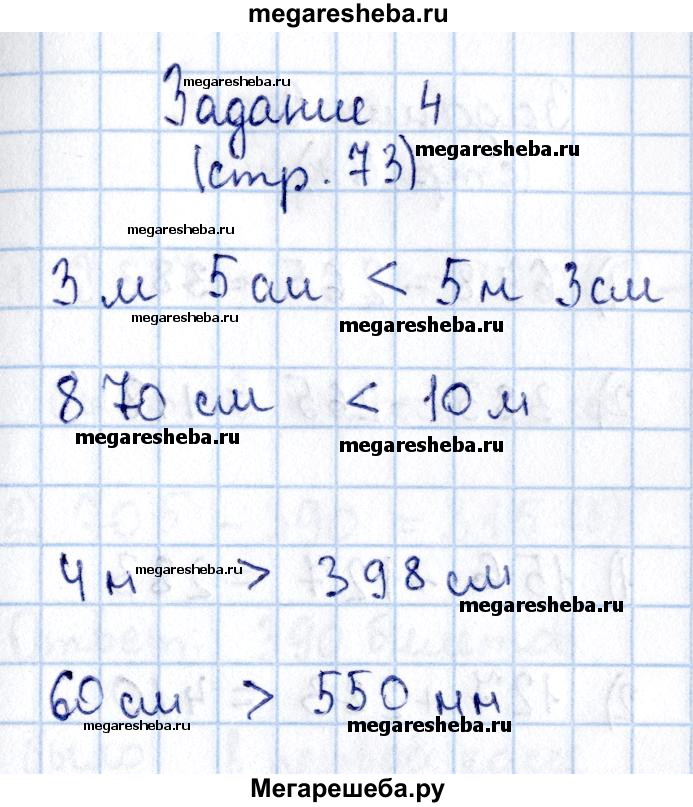 megaresheba.ru
megaresheba.ru
Задание 4
(стр. 73) megaresheba.ru
megaresheba.ru
3 м 5 см < 5 м 3 см
megaresheba.ru megaresheba.ru
870 см < 10 м
megaresheba.ru megaresheba.ru
4 м megaresheba.ru > 398 см
megaresheba.ru
60 см > 550 мм
megaresheba.ru megaresheba.ru
Мегарешеба.ру